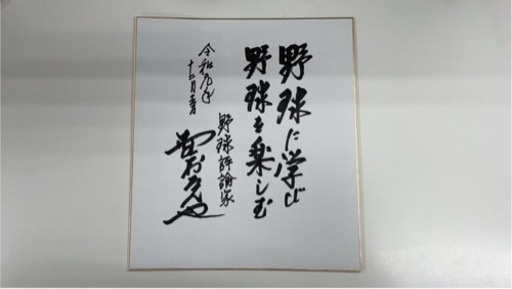 野球に学び
野球を楽しむ
令和元年
十二月
野球評論家
野村克也